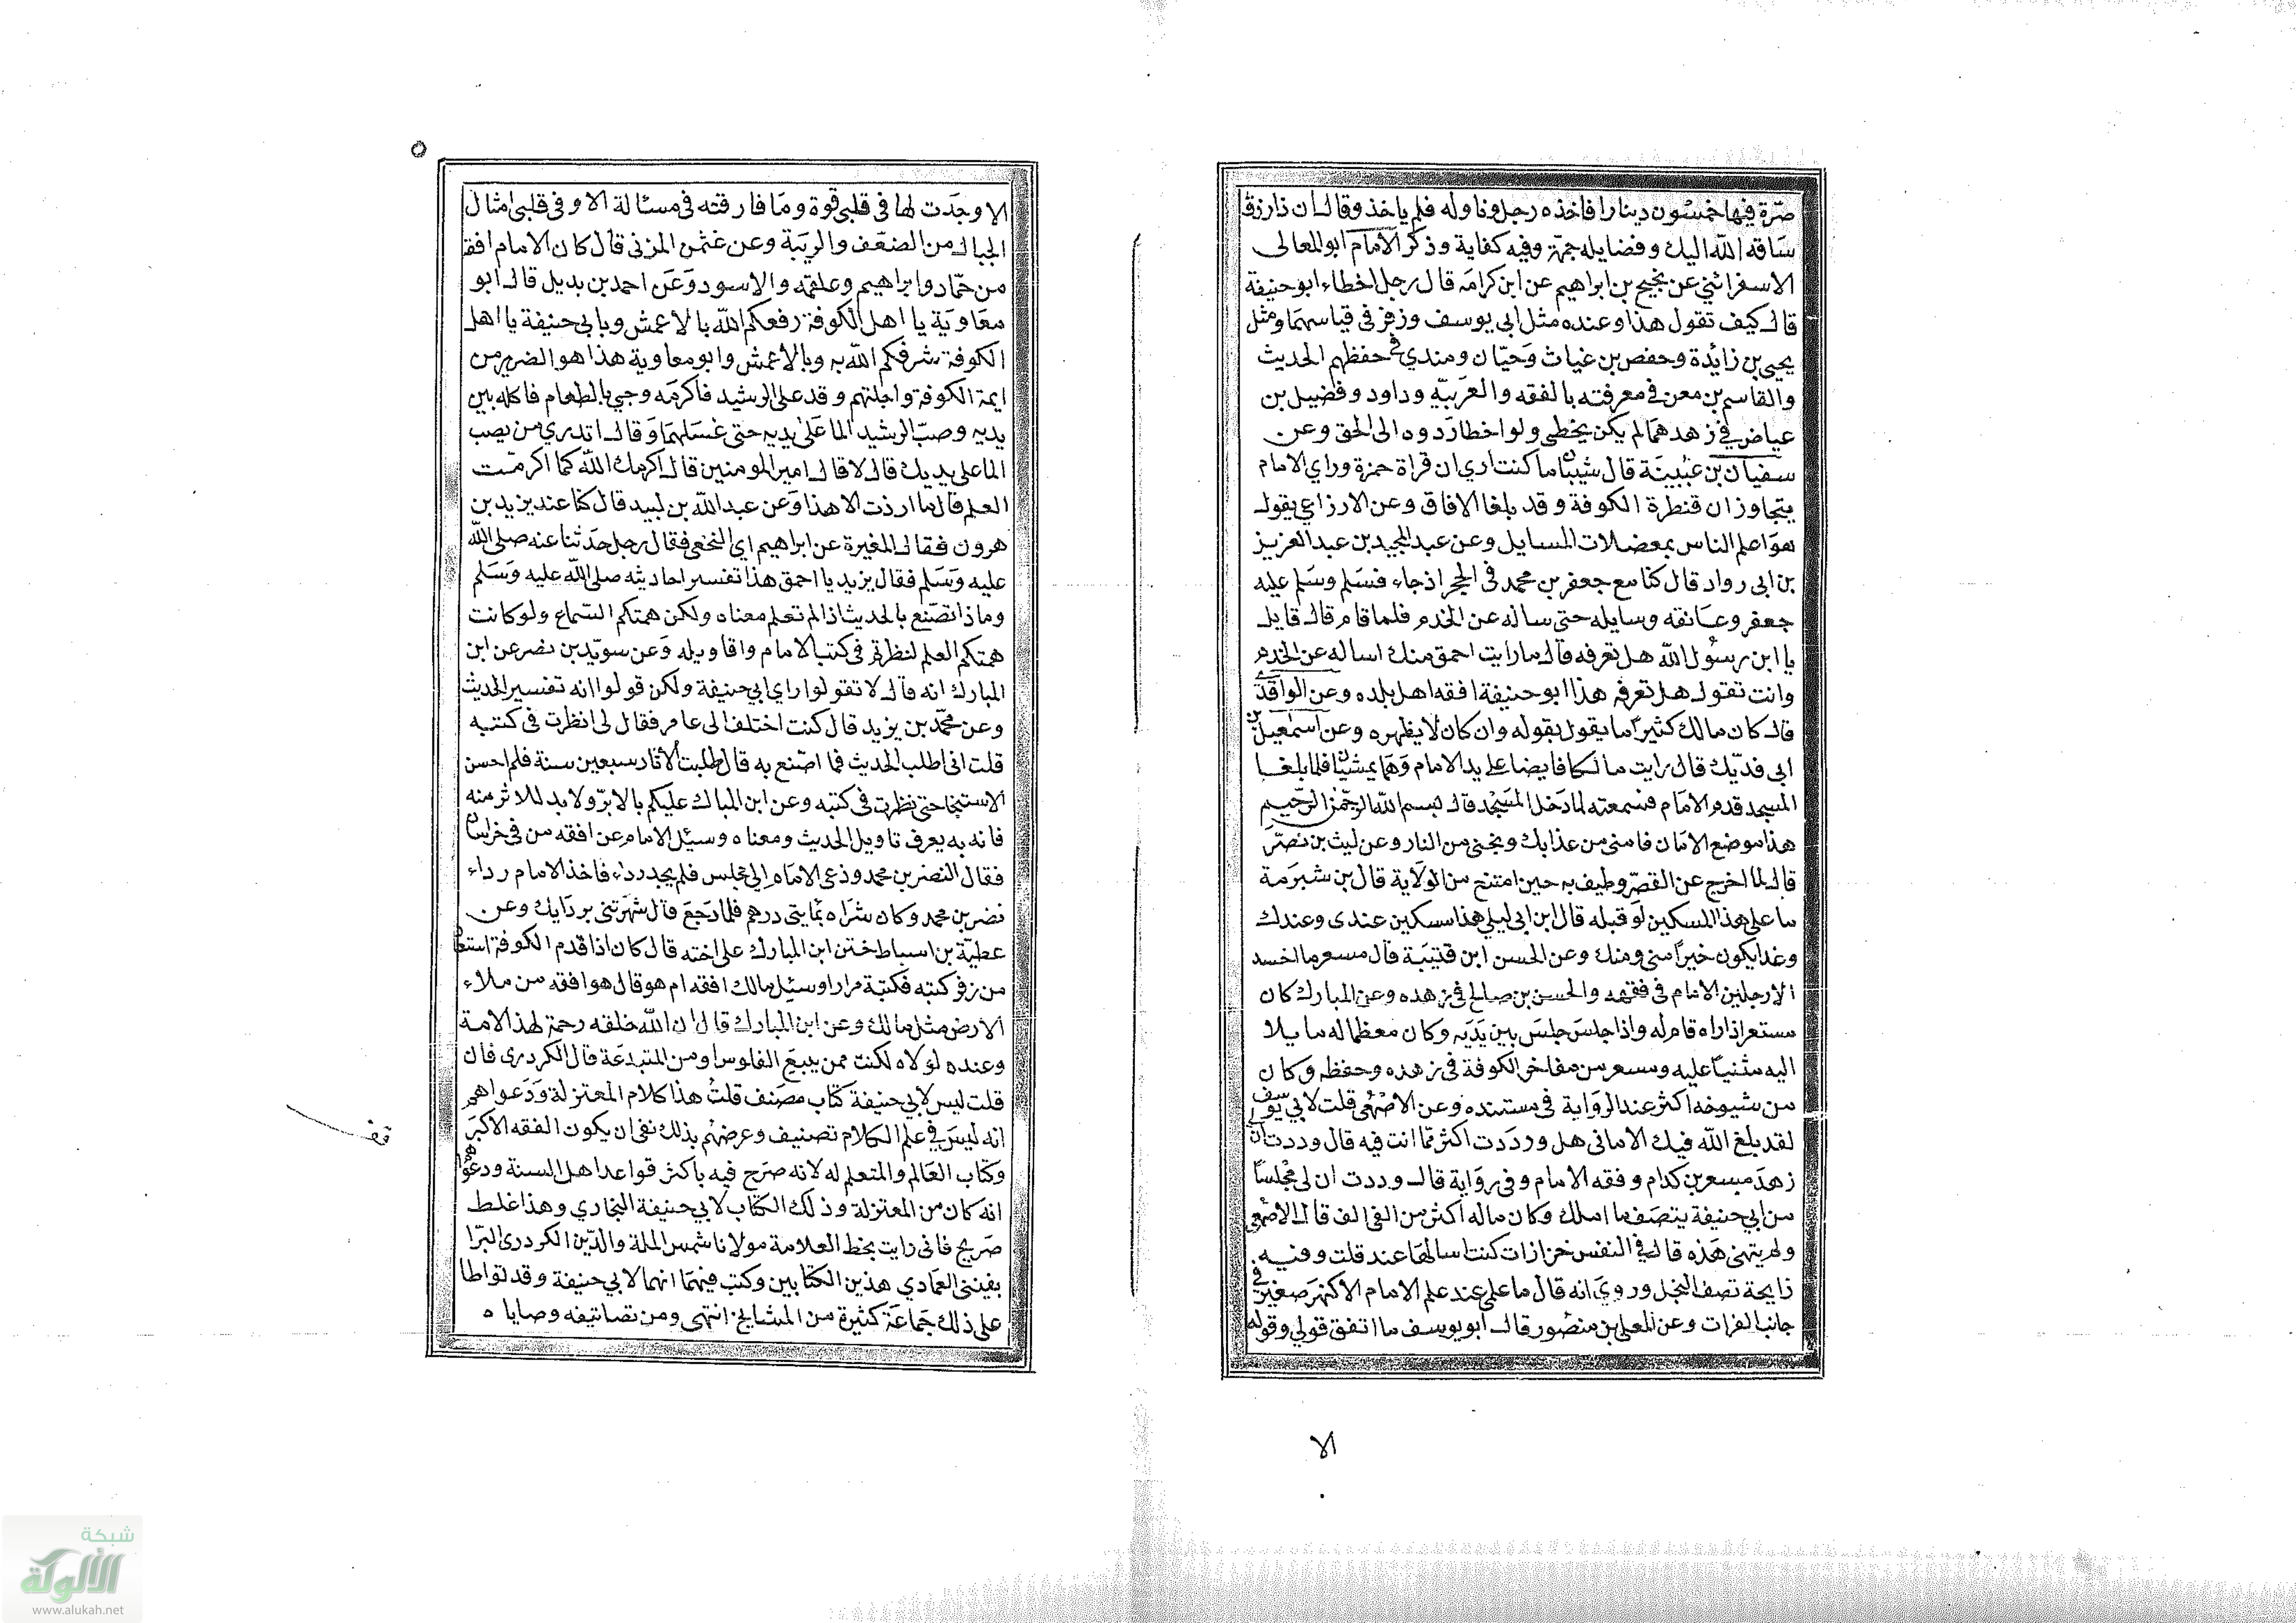 صرة فيها خمسون دينارا فاخذه رجل وناوله فلم ياخذ وقال ان ذا رزق
ساقه الله اليك وفضايله جمة وفيه كفاية وذكر الامام ابو المعالى
الاسفرائني عن نجيح بن ابراهيم عن ابن كرامة قال رجل اخطاء ابو حنيفة
قال كيف تقول هذا وعنده مثل ابي يوسف وزفر في قياسهما ومثل
يحيى بن زائدة وحفص بن غياث وحيان ومندي في حفظهم الحديث
والقاسم بن معن في معرفته بالفقه والعربيّة وداود وفضيل بن
عياض في زهدهما لم يكن يخطي ولو اخطا ردوه الى الحق وعن
سفيان بن عيينة قال شيئان ما كنت اري ان قراة حمزة وراي الامام
يتجاوزان قنطرة الكوفة وقد بلغا الافاق وعن الاوزاعي يقول
هو اعلم الناس بمعضلات المسايل وعن عبد المجيد بن عبد العزيز
بن ابي رواد قال كنا مع جعفر بن محمد في الحجر اذ جاء فسلم وسلم عليه
جعفر وعانقه وسايله حتى ساله عن الخدم فلما قام قال قايل
يا ابن رسول الله هل تعرفه قال ما رايت احمق منك اساله عن الخدم
وانت تقول هل تعرفه هذا ابو حنيفة افقه اهل بلده وعن الواقدي
قال كان مالك كثيرا ما يقول بقوله وان كان لا يظهره وعن اسمعيل بن
ابي فديك قال رايت مالكا قابضا على يد الامام وهما يمشيان فلما بلغا
المسجد قدم الامام فسمعته لما دخل المسجد قال بسم الله الرحمن الرحيم
هذا موضع الامان فامني من عذابك ونجني من النار وعن ليث بن نصر
قال لما اخرج عن القصر وطيف به حين امتنع من الولاية قال بن شبرمة
ما على هذا المسكين لو قبله قال ابن ابي ليلى هذا مسكين عندى وعندك
وغدا يكون خيرا مني ومنك وعن الحسن ابن قتيبة قال مسعر ما احسد
الا رجلين الامام في فقهه والحسن بن صالح في زهده وعن المبارك كان
مستعر اذا راه قام له واذا جلس جلس بين يديه وكان معظما له مايلا
اليه مثنيا عليه ومسعر من مفاخر الكوفة في زهده وحفظه وكان
من شيوخه اكثر عند الرواية في مسنده وعن الاصمعي قلت لابي يوسف
لقد بلغ الله فيك الاماني هل وردت اكثر مما انت فيه قال وددت ان
زهد مسعر بن كدام وفقه الامام وفي رواية قال وددت ان لي مجلسا
من ابي حنيفة بنصف ما املك وكان ماله اكثر من الفي الف قال الاصمعي
ولم يتمنى هذه قال في النفس حزازات كنت سالها عند قلت وفيه
رايحة نصف النجل وروي انه قال ما علمي عند علم الامام الا كنهر صغير في
جانب الفرات وعن المعلى بن منصور قال ابو يوسف ما اتفق قولي وقوله
الا
الا وجدت لها في قلبي قوة وما فارقته في مسئالة الا وفي قلبي امثال
الجبال من الضعف والريبة وعن عثمن المزنى قال كان الامام افقه
من حماد وابراهيم وعلقمه والاسود وعن احمد بن بديل قال ابو
معاوية يا اهل الكوفة رفعكم الله بالاعمش وبابي حنيفة يا اهل
الكوفة شرفكم الله به وبالاعمش وابو معاوية هذا هو الضرير من
ايمة الكوفة واجلتهم وقد على الرشيد فاكرمه وجيء بالطعام فاكله بين
يديه وصب الرشيد الما على يديه حتى غسلهما وقال اتدري من يصب
الما على يديك قال لا قال امير المومنين قال اكرمك الله كما اكرمت
العلم قال ما اردت الا هذا وعن عبد الله بن لبيد قال كنا عند يزيد بن
هرون فقال المغيرة عن ابراهيم اي النخعي فقال رجل حدثنا عنه صلى الله
عليه وسلم فقال يزيد يا احمق هذا تفسير احاديثه صلى الله عليه وسلم
وماذا تصنع بالحديث اذا لم تعلم معناه ولكن همتكم السماع ولو كانت
همتكم العلم لنظرتم في كتب الامام واقاويله وعن سويد بن نصر عن ابن
المبارك انه قال لا تقولوا راي ابي حنيفة ولكن قولوا انه تفسير الحديث
وعن محمد بن يزيد قال كنت اختلف الى عامر فقال لى انظرت في كتبه
قلت اني اطلب الحديث فما اصنع به قال طلبت الاثار سبعين سنة فلم احسن
الاستنجا حتى نظرت في كتبه وعن ابن المبارك عليكم بالاثر ولابد للاثر منه
فانه به يعرف تاويل الحديث ومعناه وسئل الامام عن افقه من في خراسان
فقال النضر بن محمد ودعي الامام الى مجلس فلم يجد رداء فاخذ الامام رداء
نضر بن محمد وكان شراه بمايتي درهم فلما رجع قال شهرتني بردايك وعن
عطية بن اسباط ختن ابن المبارك على اخته قال كان اذا قدم الكوفة استعار
من زفر كتبه فكتبه مرارا وسئل مالك افقه ام هو قال هو افقه من ملاء
الارض مثل مالك وعن ابن المبارك قال ان الله خلقه رحمة لهذا الامة
وعنده لولاه لكنت ممن يبيع الفلوس او من المبتدعة قال الكردرى فان
قلت ليس لابي حنيفة كتاب مصنف قلت هذا كلام المعتزلة ودعواهم
انه ليس في علم الكلام تصنيف وعرضهم بذلك نفي ان يكون الفقه الاكبر
وكتاب العالم والمتعلم له لانه صرح فيه باكثر قواعد اهل السنة ودعواهم
انه كان من المعتزلة وذلك الكتاب لابي حنيفة البخاري وهذا غلط
صريح فاني رايت بخط العلامة مولانا شمس الملة والدين الكردرى البرا
بفينني العمادي هذين الكتابين وكتب فيهما انهما لابي حنيفة وقد تواطا
على ذلك جماعة كثيرة من المشايخ انتهى ومن تصانيفه وصاياه
قف
شبكة
الألوكة
www.alukah.net